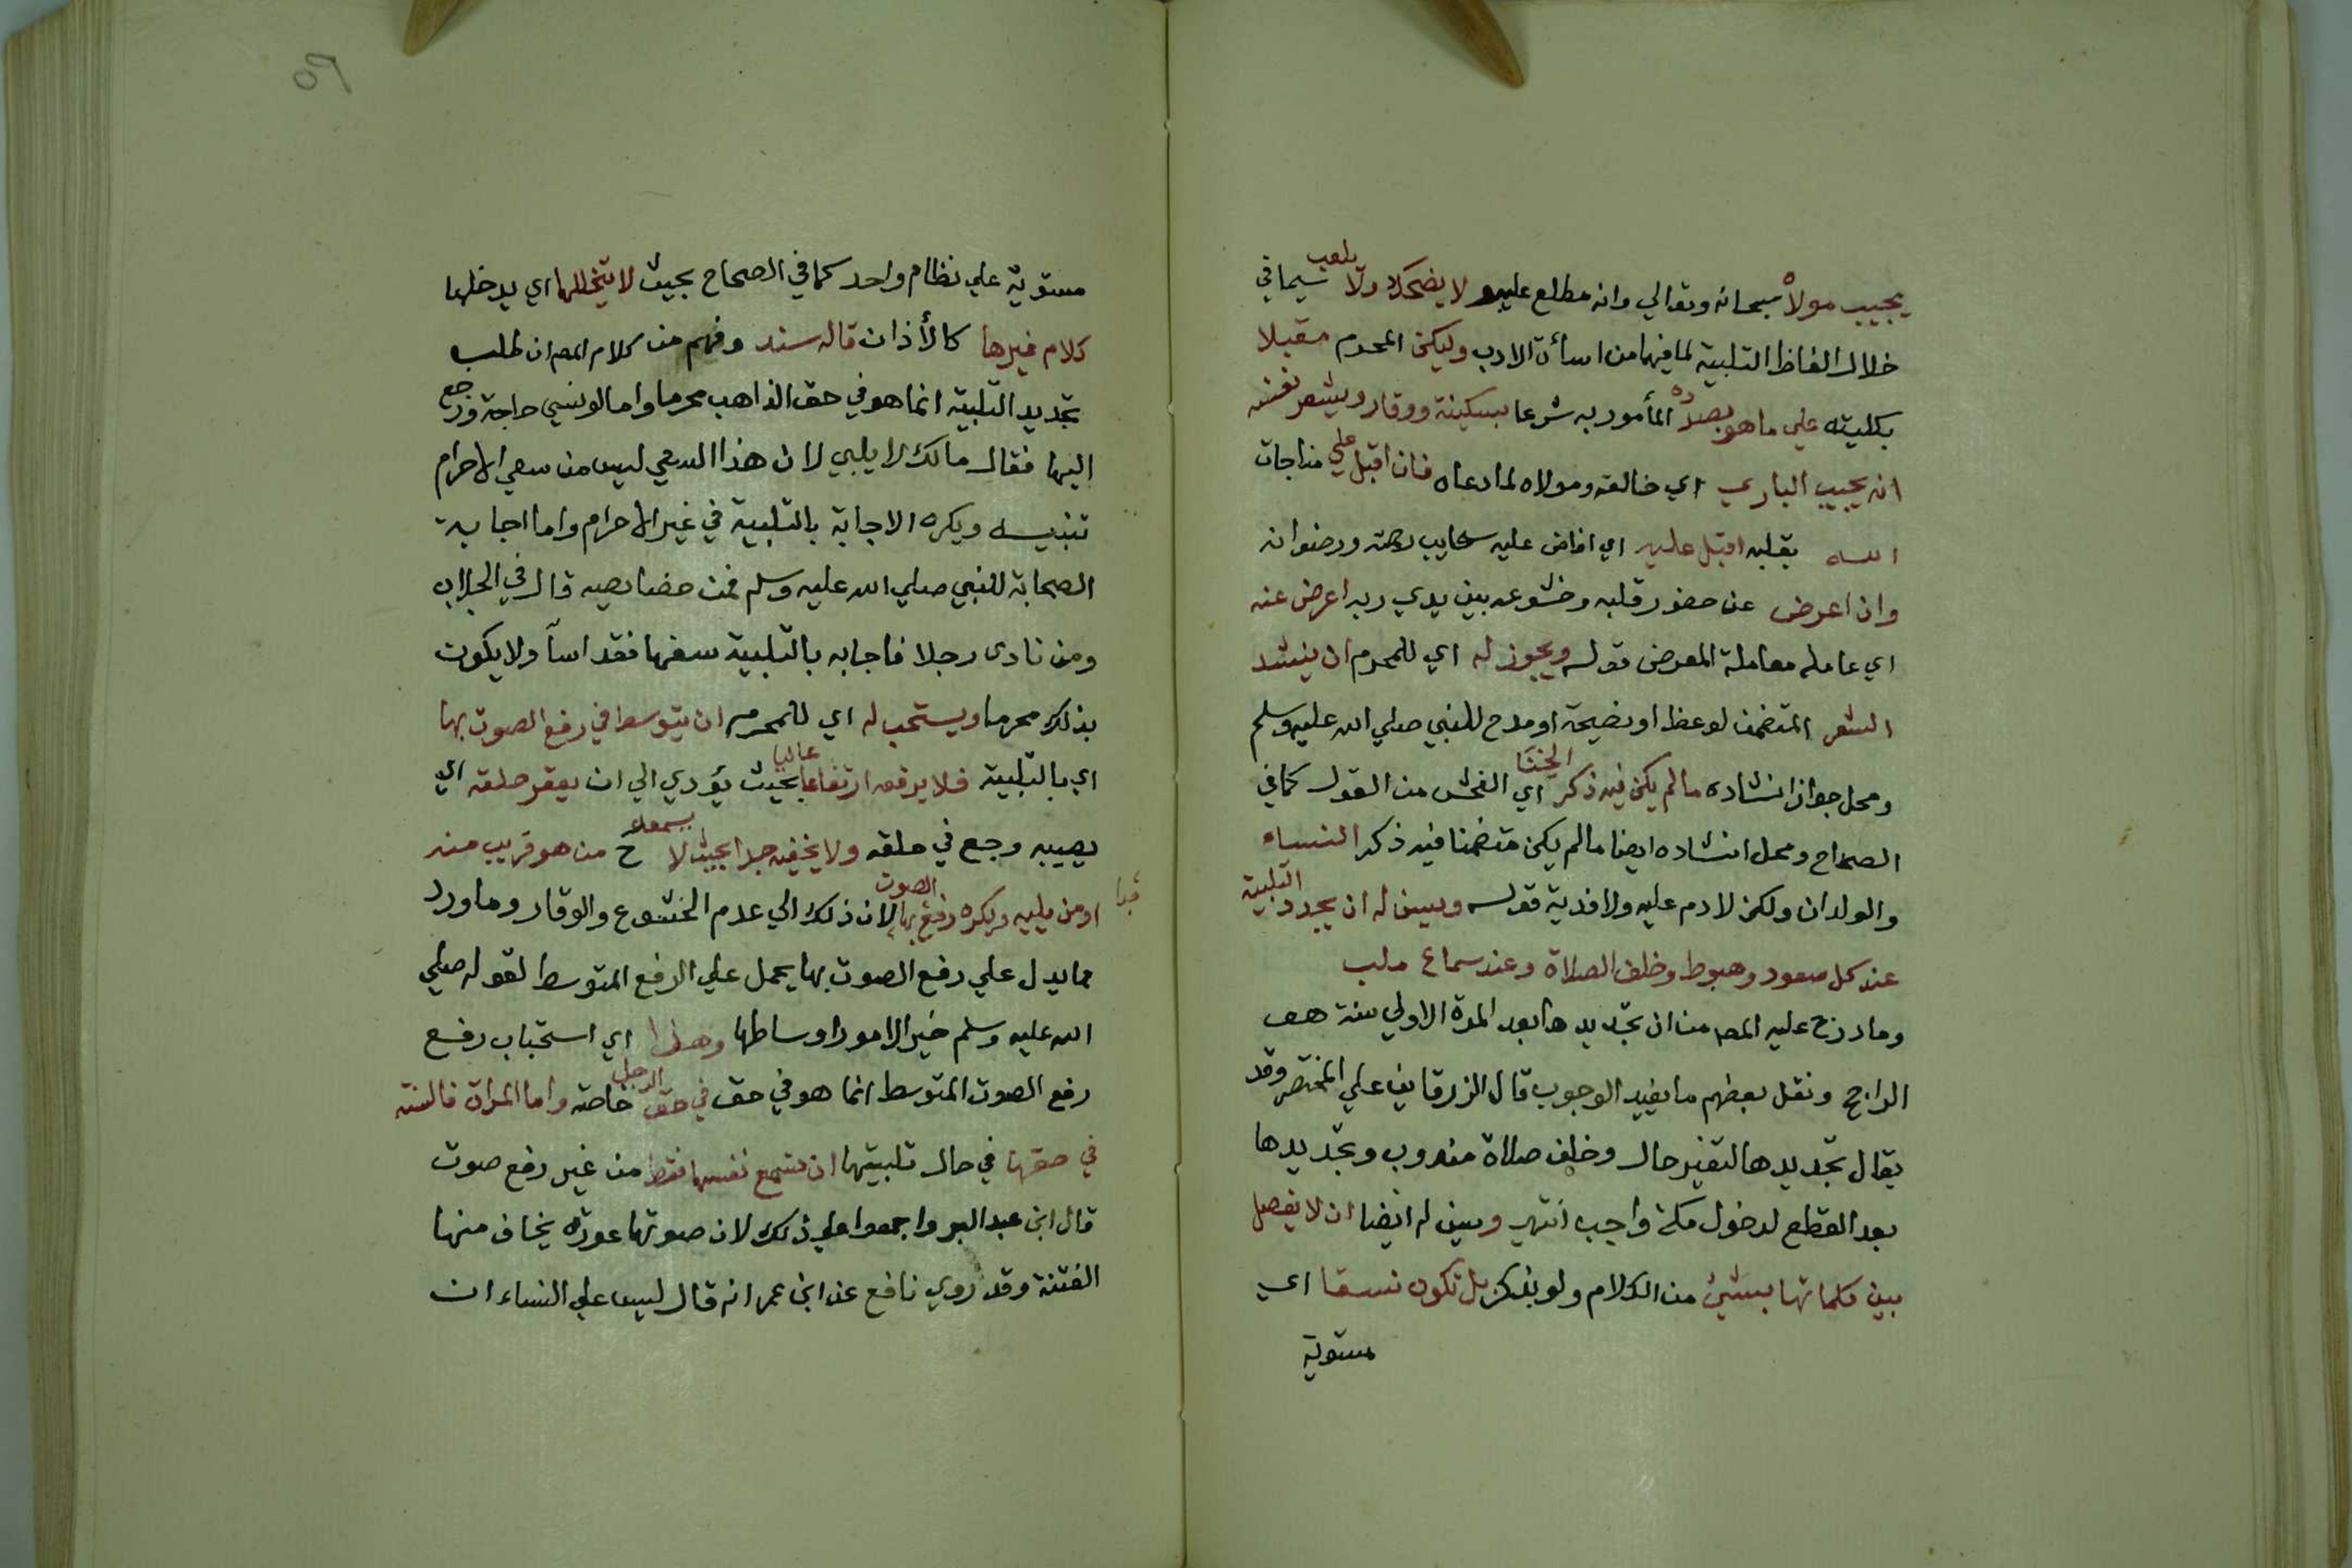 يجيب مولاه سبحانه وتعالي وانه مطلع عليه لا يضحك ولا يلعب سيما في
خلال الفاظ التلبية لما فيهما من اسأة الادب وليكن المحرم مقبلا
بكليته علي ما هو بصدده المأمور به شرعا بسكينة ووقار ويشعر نفسه
انه يجيب الباري اي خالقه ومولاه لما دعاه فان اقبل علي مناجات
الله بقلبه اقبل عليه اي افاض عليه سحايب رحمته ورضوانه
وان اعرض عن حضور قلبه وخشوعه بين يدي ربه اعرض عنه
اي عامله معاملة المعرض قوله ويجوز له اي للمحرم ان ينشد
الشعر المتضمن لوعظ او نصيحة او مدح للنبي صلي الله عليه وسلم
ومحل جواز انشاده ما لم يكن فيه ذكر الخنا اي الفحش من القول كما في
الصحاح ومحل انشاده ايضا ما لم يكن متضمنا فيه ذكر النساء
والولدان ولكن لا دم عليه ولا فدية قوله ويسن له ان يجدد التلبية
عند كل صعود وهبوط وخلف الصلاة وعند سماع ملب
وما درج عليه المص من ان تجديدها بعد المرة الاولي سنة هو
الراجح ونقل بعضهم ما يفيد الوجوب قال الزرقاني علي المختصر وقد
يقال تجديدها لتغير حال وخلف صلاة مندوب وتجديدها
بعد القطع لدخول مكة واجب انتهي ويسن له ايضا ان لا يفصل
بين كلماتها بشئ من الكلام ولو بذكر بل تكون نسقا اي
مستوية
٥٩
مستوية علي نظام واحد كما في الصحاح بحيث لا يتخللها اي يدخلها
كلام غيرها كالأذان قاله سند وفهم من كلام المص ان طلب
تجديد التلبية انما هو في حق الذاهب محرما واما لو نسي حاجة ورجع
اليها فقال مالك لا يلبي لان هذا السعي ليس من سعي الاحرام
تنبيه ويكره الاجابة بالتلبية في غير الاحرام واما اجابة
الصحابة للنبي صلي الله عليه وسلم فمن خصايصه قال في الجلاب
ومن نادى رجلا فاجابه بالتلبية سفها فقد اسآ ولا يكون
بذلك محرما ويستحب له اي للمحرم ان يتوسط في رفع الصوت بها
اي بالتلبية فلا يرفعه ارتفاعا عاليا بحيث يؤدي الي ان يعقر حلقه اي
يصيبه وجع في حلقه ولا يخفيه جدا بحيث لا يسمعه ح من هو قريب منه
او من يليه ويكره رفع الصوت بها لان ذلك الي عدم الخشوع والوقار وما ورد
مما يدل علي رفع الصوت بها يحمل علي الرفع المتوسط لقوله صلي
الله عليه وسلم خير الامور اوساطها وهذا اي استحباب رفع
رفع الصوت المتوسط انما هو في حق في حق الرجل خاصة واما المرأة فالسنة
في حقها في حال تلبيتها ان تسمع نفسها فقط من غير رفع صوت
قال ابن عبد البر واجمعوا علي ذلك لان صوتها عورة يخاف منها
الفتنة وقد روي نافع عن ابن عمر انه قال ليس علي النساء ان